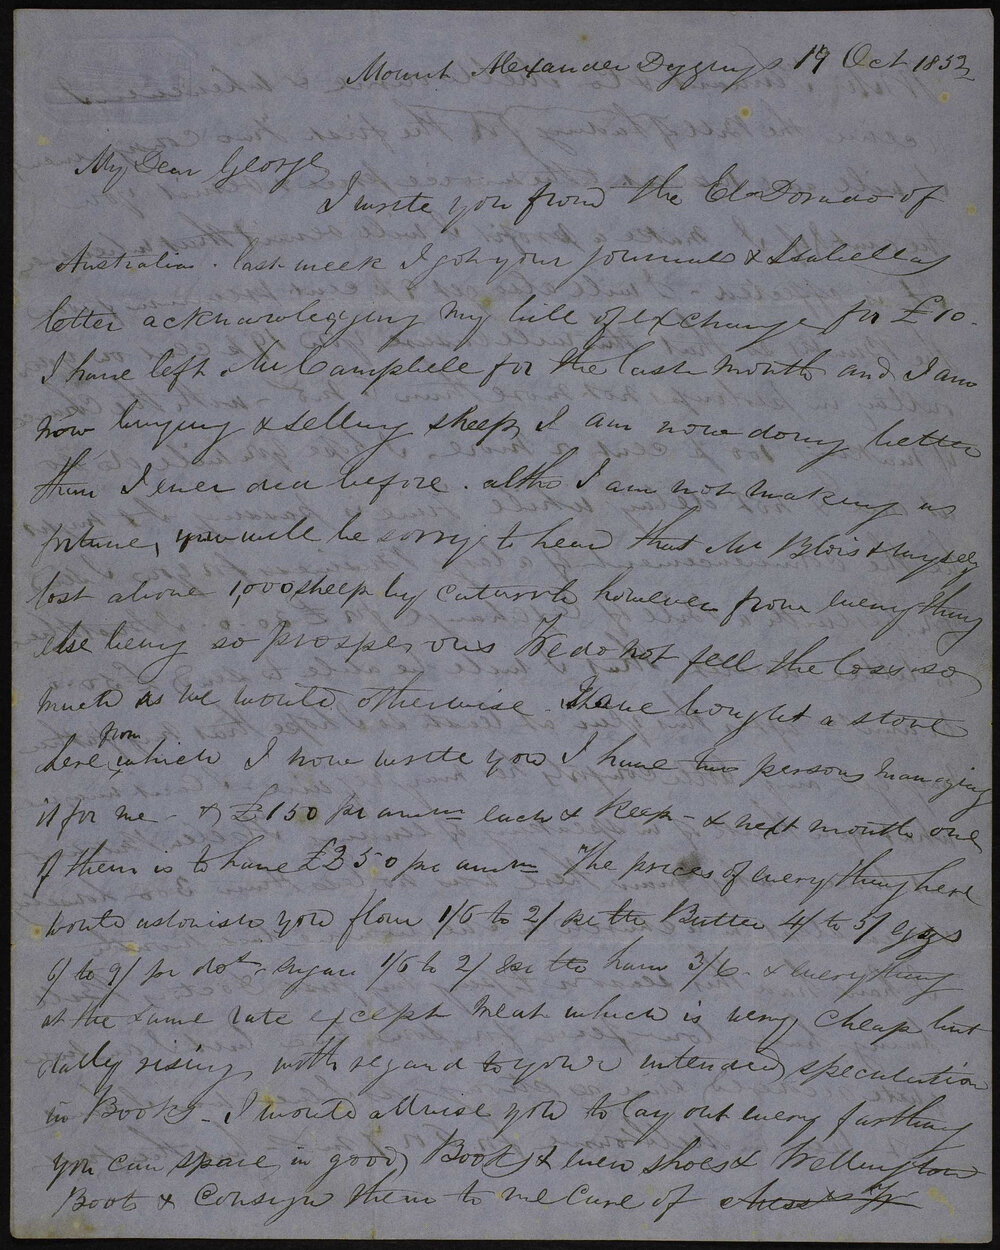 Mount Alexander Dyggings 19 Oct 1852
My Dear George
I write you from the El Dorado of
Australia. last week I got your journal & Isabellas
letter acknowledging my bill of exchange for £10.
I have left Mr Campbell for the last month and I am
now buying & selling sheep, I am now doing better
than I ever did before. altho I am not making a
fortune, you will be sorry to hear that Mr Blois & myself
lost above 1,000 sheep by catarrh however from every thing
else being so prosperous We do not fell the loss so
much as we would otherwise. I have bought a store
here from which I now write you I have two persons managing
it for me - @ £150 pr annm each & Keep - & next month one
of them is to have £250 pr annm The prices of every thing here
would astonish you flour 1/6 to 2/ pr lb Butter 4/ to 5/ eggs
6/ to 9/ pr doz. sugar 1/6 to 2/ pr lb ham 3/6. & everything
at the same rate except meat which is very cheap but
daily rising, with regard to your intended speculation
in Boots - I would advise you to lay out every farthing
you can spare in good Boots & even shoes & Wellington
Boots & Consign them to me care of